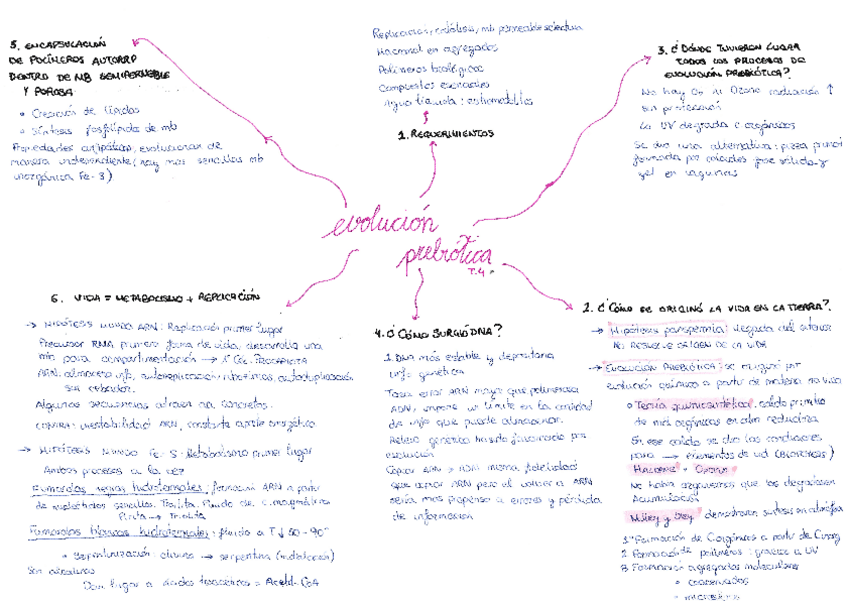 evolución
prebiótica
T.4
1. REQUERIMIENTOS
Replicación, catálisis, mb permeable selectiva
Nacional en agregados
Polímeros biológicos
Compuestos esenciales
Agua líquida:
2. ¿CÓMO SE ORIGINÓ LA VIDA EN LA TIERRA?
→ Hipótesis panspermia: llegada del exterior
NO RESUELVE ORIGEN DE LA VIDA
→ EVOLUCIÓN PREBIÓTICA: se originó por
evolución química a partir de materia no viva
• Teoría quimiosintética: caldo primitivo
de mol orgánicas en atm reductora
En ese caldo se dan las condiciones
para → elementos de vid
Haldane y Oparin
No había organismos que las degradasen
Acumulación
Miller y Urey demostraron síntesis en atmósfera
1º Formación de C orgánicos a partir de C inorg
2 Formación de polímeros: gracias a UV
3 Formación agregados moleculares
• coacervados
• microsferas
3. ¿DÓNDE TUVIERON LUGAR
TODOS LOS PROCESOS DE
EVOLUCIÓN PREBIÓTICA?
No hay O2 ni Ozono radiación ↑
sin protección
La UV degrada c orgánicos
Se dio una alternativa: pizza
formada por moléculas fase sólida y
gel en lagunas
4. ¿CÓMO SURGIÓ DNA?
1. DNA más estable y depositaria
info genética
Tasa error ARN mayor que polimerasa
ADN, impone un límite en la cantidad
de info que puede almacenar.
Relevo genético habría favorecido por
evolución
Copiar ARN → ADN misma fidelidad
que copiar ARN pero el volver a ARN
sería más propenso a errores y pérdida
de información
5. ENCAPSULACIÓN
DE POLÍMEROS AUTORRP
DENTRO DE MB SEMIPERMEABLE
Y POROSA
• Creación de lípidos
• Síntesis fosfolípida de mb
Propiedades anfipáticas, evolucionan de
manera independiente (hay más sencillas mb
inorgánica Fe-S)
6. VIDA = METABOLISMO + REPLICACIÓN
→ HIPÓTESIS MUNDO ARN: Replicación primer lugar
Precursor RNA primera forma de vida, desarrolla una
mb para compartimentación → 1ª Cel. Procariota
ARN: almacena info, autoreplicación ribozimas, autoduplicación
sin
Algunas secuencias atraen aa concretos.
contra: inestabilidad ARN, constante aporte energético
→ HIPÓTESIS MUNDO Fe-S: Metabolismo primer lugar
Ambos procesos a la vez
Fumarolas negras hidrotermales: formación ARN a partir
de nucleótidos sencillos. Troilita. Fluido de c. magmática
Pirita → Troilita
Fumarolas blancas hidrotermales: fluido a T↓ 50-90º
• Serpentinización: olivino → serpentina (hidratación)
Son alcalinas
Dan lugar a ácidos tioacéticos = Acetil-CoA